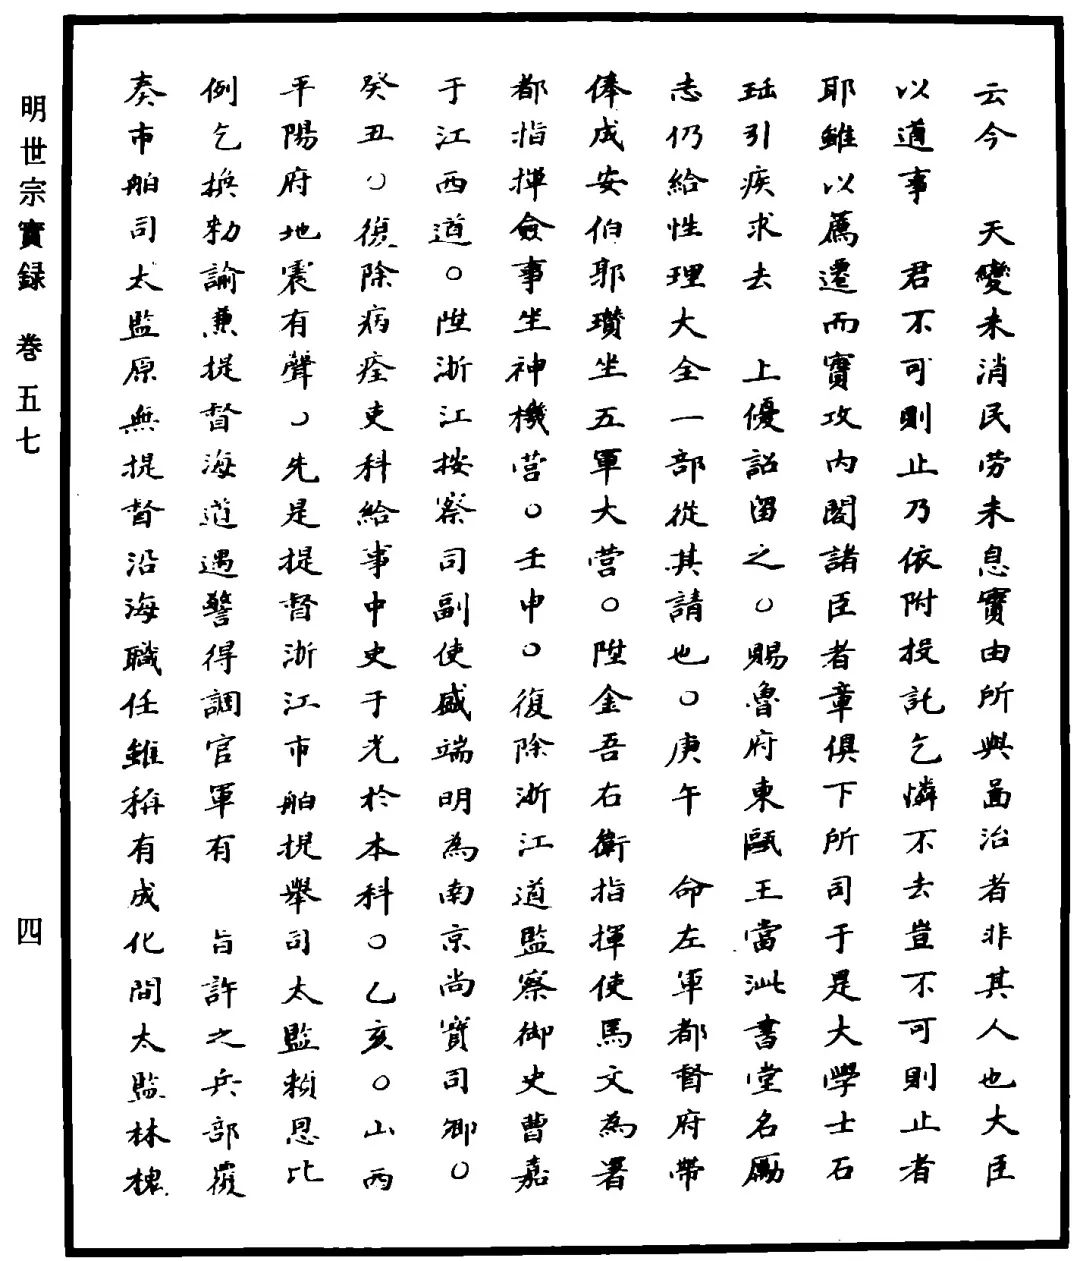 云今　天變未消民勞未息實由所與啚治者非其人也大臣
以道事　君不可則止乃依附投託乞憐不去豈不可則止者
耶雖以薦遷而實攻內閣諸臣者章俱下所司于是大學士石
珤引疾求去　上優詔留之○賜魯府東甌王當沘書堂名勵
志仍給性理大全一部從其請也○庚午　命左軍都督府帶
俸成安伯郭瓚坐五軍大營○陞金吾右衛指揮使馬文為署
都指揮僉事坐神機營○壬申○復除浙江道監察御史曹嘉
于江西道○陞浙江按察司副使盛端明為南京尚寶司卿○
癸丑○復除病痊吏科給事中史于光於本科○乙亥○山西
平陽府地震有聲○先是提督浙江市舶提舉司太監賴恩比
例乞換勑諭兼提督海道遇警得調官軍有　旨許之兵部覆
奏市舶司太監原無提督沿海職任雖稱有成化間太監林槐
明世宗實録　卷五七
四